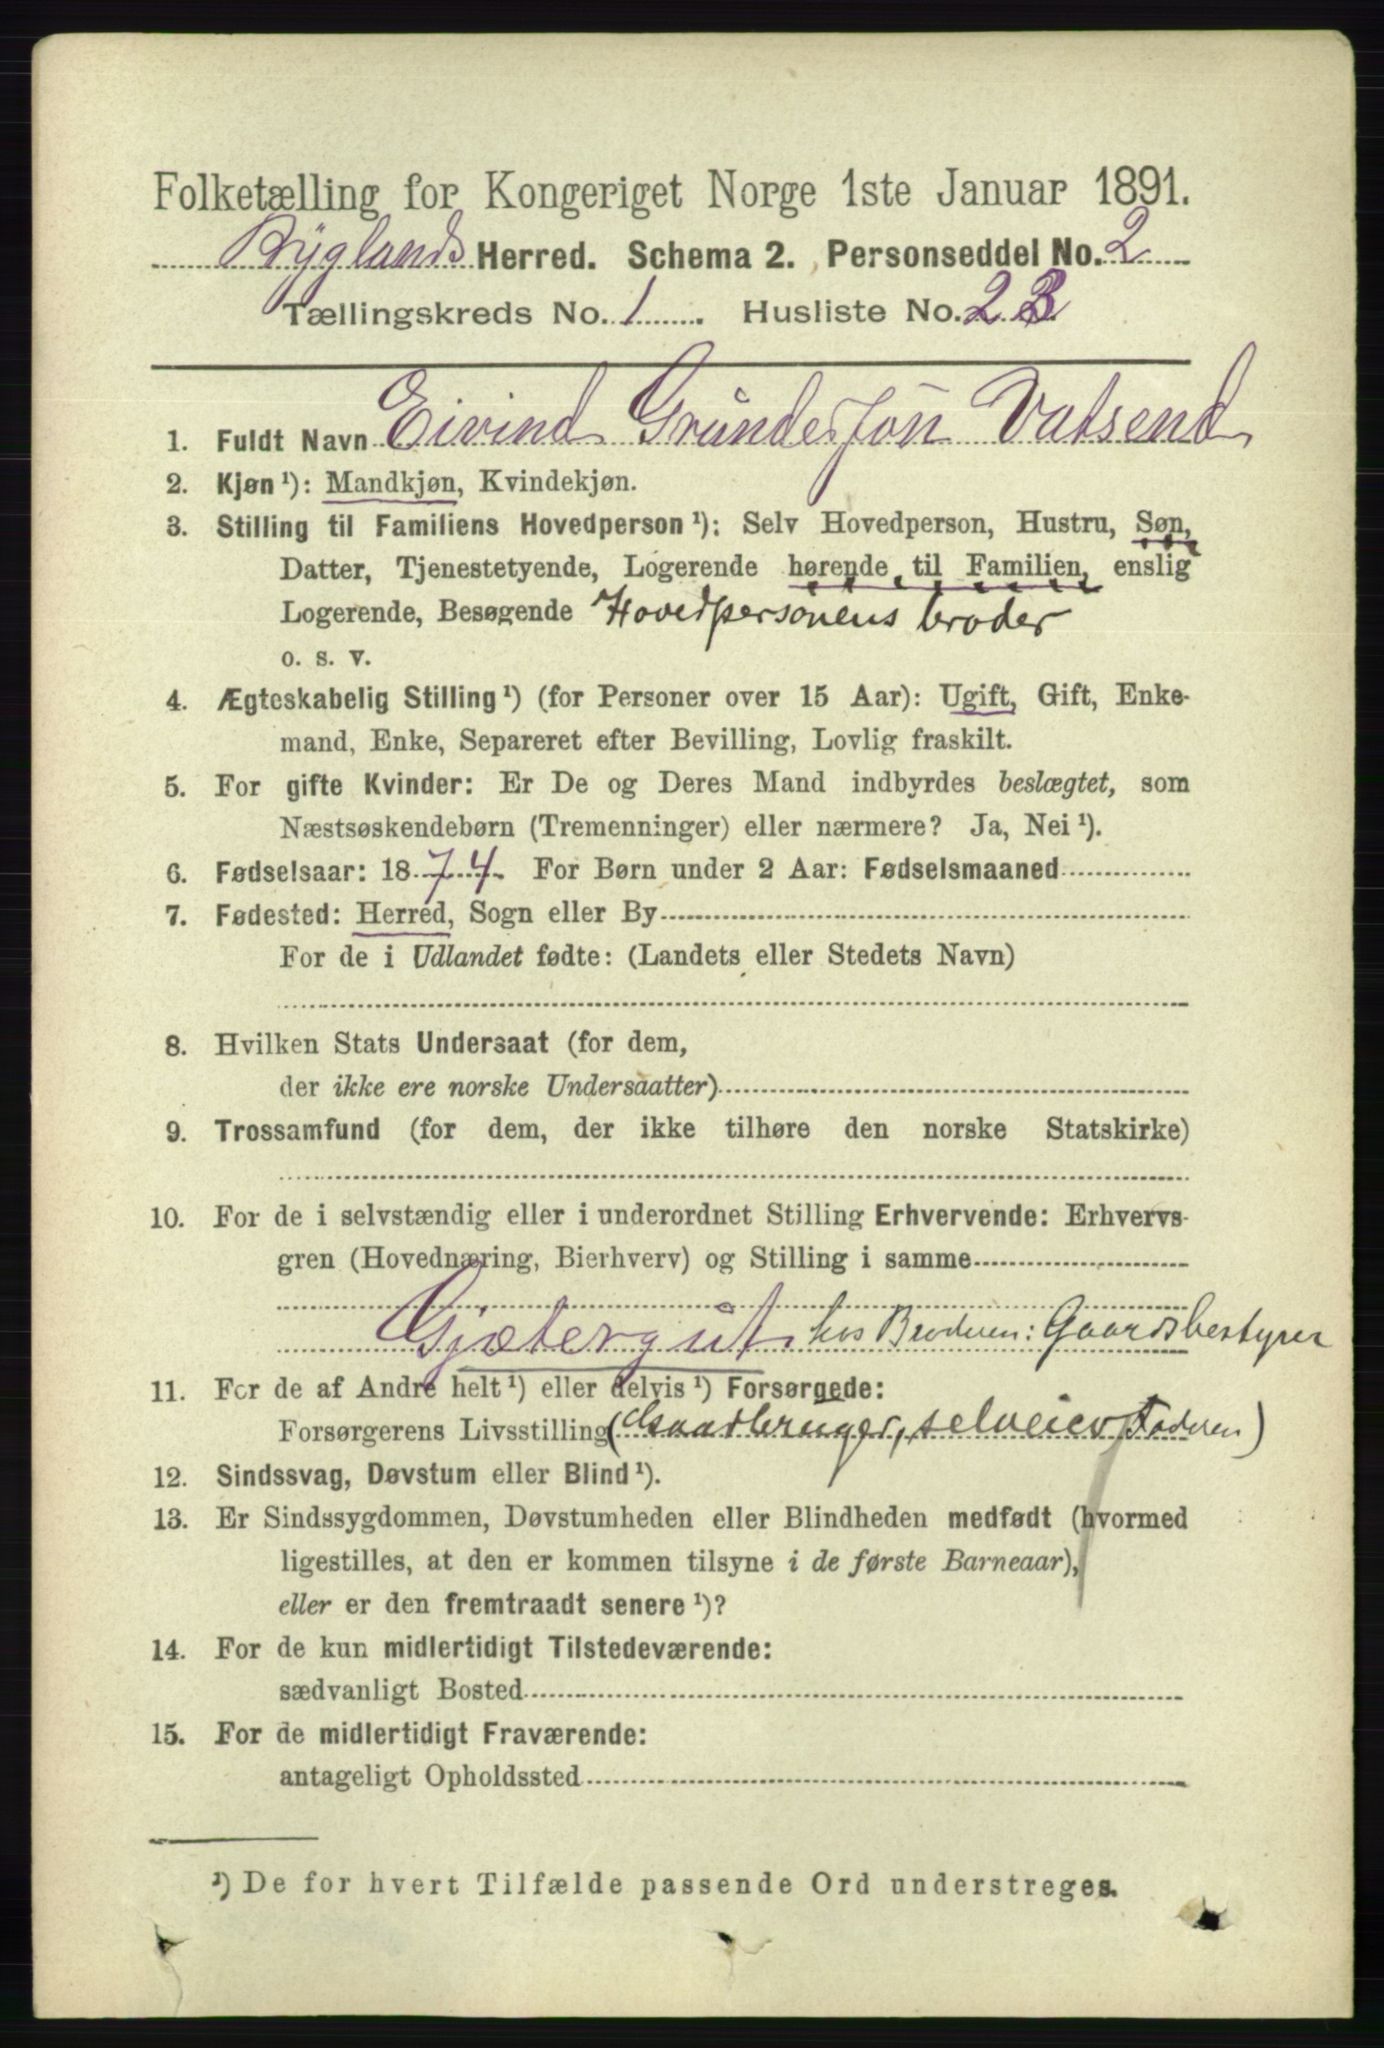 Folketælling for Kongeriget Norge 1ste Januar 1891.
Byglands Herred. Schema 2. Personseddel No. 2
Tællingskreds No. 1 Husliste No. 23
1. Fuldt Navn Eivind Gundersøn Vatsend
2. Kjøn ¹): Mandkjøn, Kvindekjøn.
3. Stilling til Familiens Hovedperson ¹): Selv Hovedperson, Hustru, Søn,
Datter, Tjenestetyende, Logerende hørende til Familien, enslig
Logerende, Besøgende Hovedpersonens broder
o. s. v.
4. Ægteskabelig Stilling ¹) (for Personer over 15 Aar): Ugift, Gift, Enke-
mand, Enke, Separeret efter Bevilling, Lovlig fraskilt.
5. For gifte Kvinder: Er De og Deres Mand indbyrdes beslægtet, som
Næstsøskendebørn (Tremenninger) eller nærmere? Ja, Nei ¹).
6. Fødselsaar: 1874. For Børn under 2 Aar: Fødselsmaaned
7. Fødested: Herred, Sogn eller By
For de i Udlandet fødte: (Landets eller Stedets Navn)
8. Hvilken Stats Undersaat (for dem,
der ikke ere norske Undersaatter)
9. Trossamfund (for dem, der ikke tilhøre den norske Statskirke)
10. For de i selvstændig eller i underordnet Stilling Erhvervende: Erhvervs-
gren (Hovednæring, Bierhverv) og Stilling i samme
Gjætergut hos Broderen: Gaardsbestyrer
11. For de af Andre helt ¹) eller delvis ¹) Forsørgede:
Forsørgerens Livsstilling (Gaardbruger, selveier Faderen)
12. Sindssvag, Døvstum eller Blind ¹).
13. Er Sindssygdommen, Døvstumheden eller Blindheden medfødt (hvormed
ligestilles, at den er kommen tilsyne i de første Barneaar),
eller er den fremtraadt senere ¹)?
14. For de kun midlertidigt Tilstedeværende:
sædvanligt Bosted
15. For de midlertidigt Fraværende:
antageligt Opholdssted
¹) De for hvert Tilfælde passende Ord understreges.